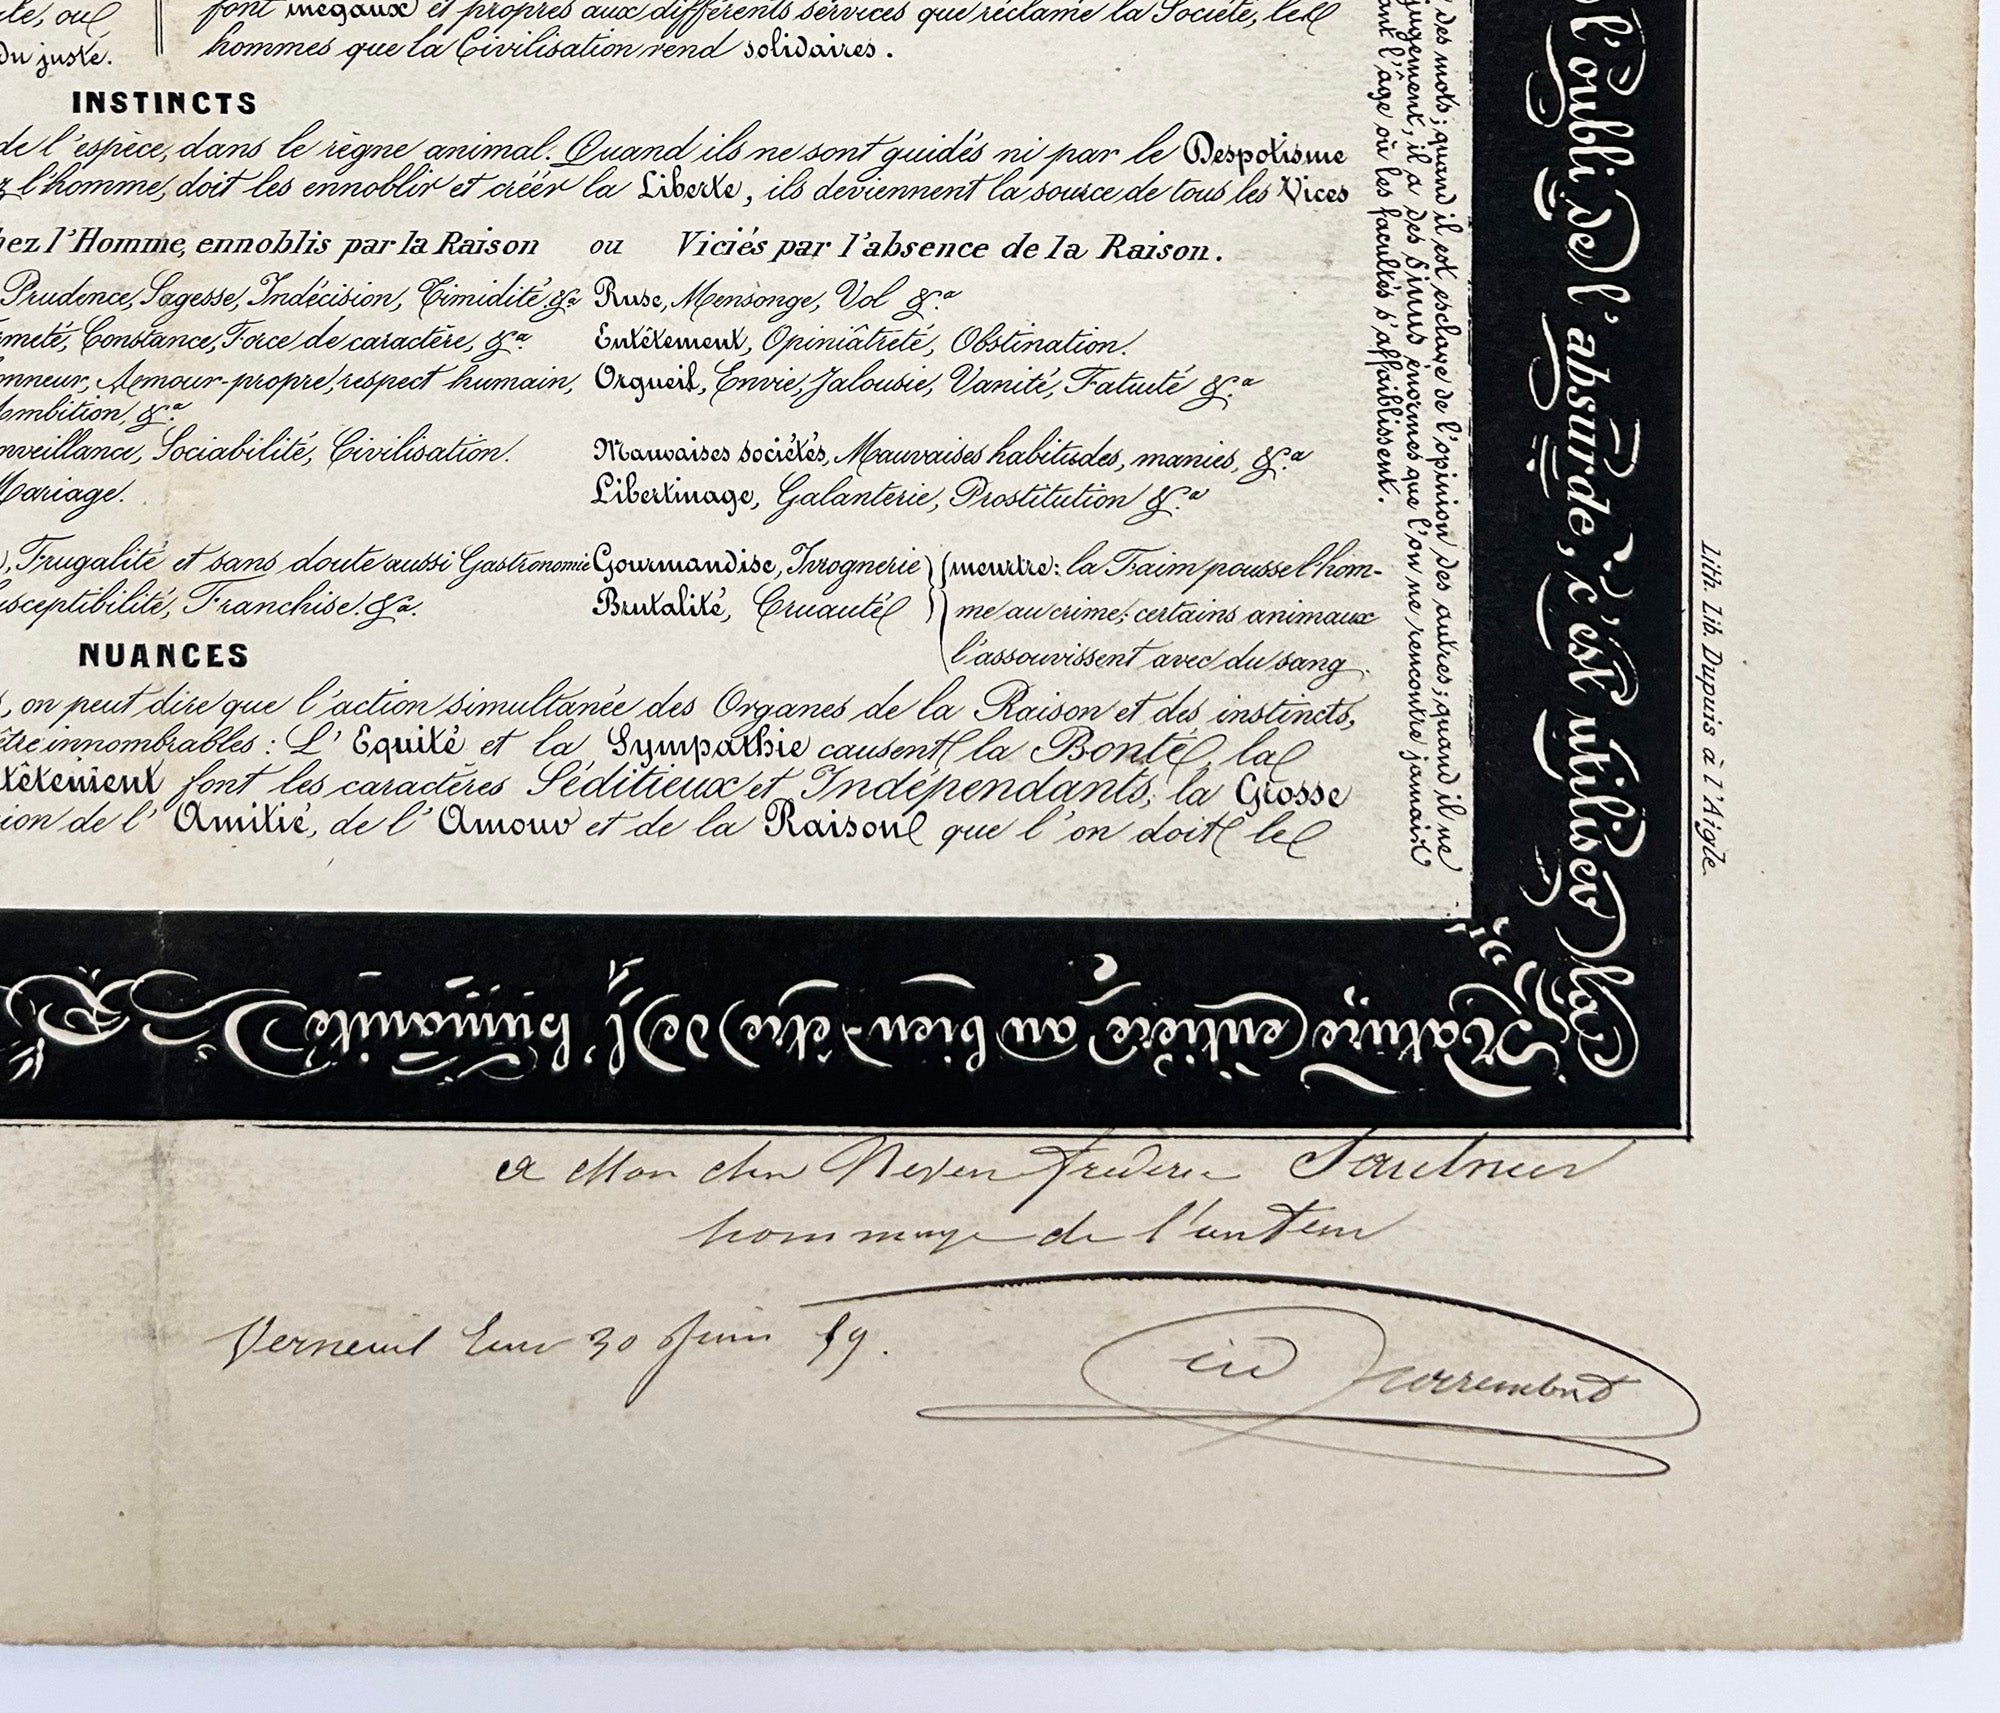 font inégaux et propres aux différents services que réclame la Société, les
du juste.
hommes que la Civilisation rend solidaires.
INSTINCTS
de l'espèce, dans le règne animal. Quand ils ne sont guidés ni par le Despotisme
z l'homme, doit les ennoblir et créér la Liberté, ils deviennent la source de tous les Vices
hez l'Homme, ennoblis par la Raison ou Viciés par l'absence de la Raison.
Prudence, Sagesse, Indécision, Timidité &a Ruse, Mensonge, Vol &a
rmeté, Constance, Force de caractère, &a Entêtement, Opiniâtreté, Obstination.
onneur, Amour-propre, respect humain, Orgueil, Envie, Jalousie, Vanité, Fatuité &a
Ambition, &a
nveillance, Sociabilité, Civilisation. Mauvaises sociétés, Mauvaises habitudes, manies, &a
Mariage. Libertinage, Galanterie, Prostitution &a
, Frugalité et sans doute aussi Gastronomie Gourmandise, Ivrognerie meurtre: la Faim pousse l'hom-
usceptibilité, Franchise &a. Brutalité, Cruauté me au crime; certains animaux
l'assouvissent avec du sang.
NUANCES
, on peut dire que l'action simultanée des Organes de la Raison et des instincts,
être innombrables: L'Equité et la Sympathie causent la Bonté, la
têtement font les caractères Séditieux et Indépendants; la Grosse
ion de l'Amitié, de l'Amour et de la Raison que l'on doit le
des mots; quand il est esclave de l'opinion des autres; quand il ne
jugement, il a des Sinus énormes que l'on ne rencontre jamais
ant l'âge où les facultés s'affaiblissent.
l'oubli de l'absurde, c'est utiliser la
Nature entière au bien-être de l'humanité
Lith. Lib. Dupuis à l'Aigle.
a Mon cher Neveu Frederic Saulnier
hommage de l'auteur
Verneuil Eure 30 Juin 59.